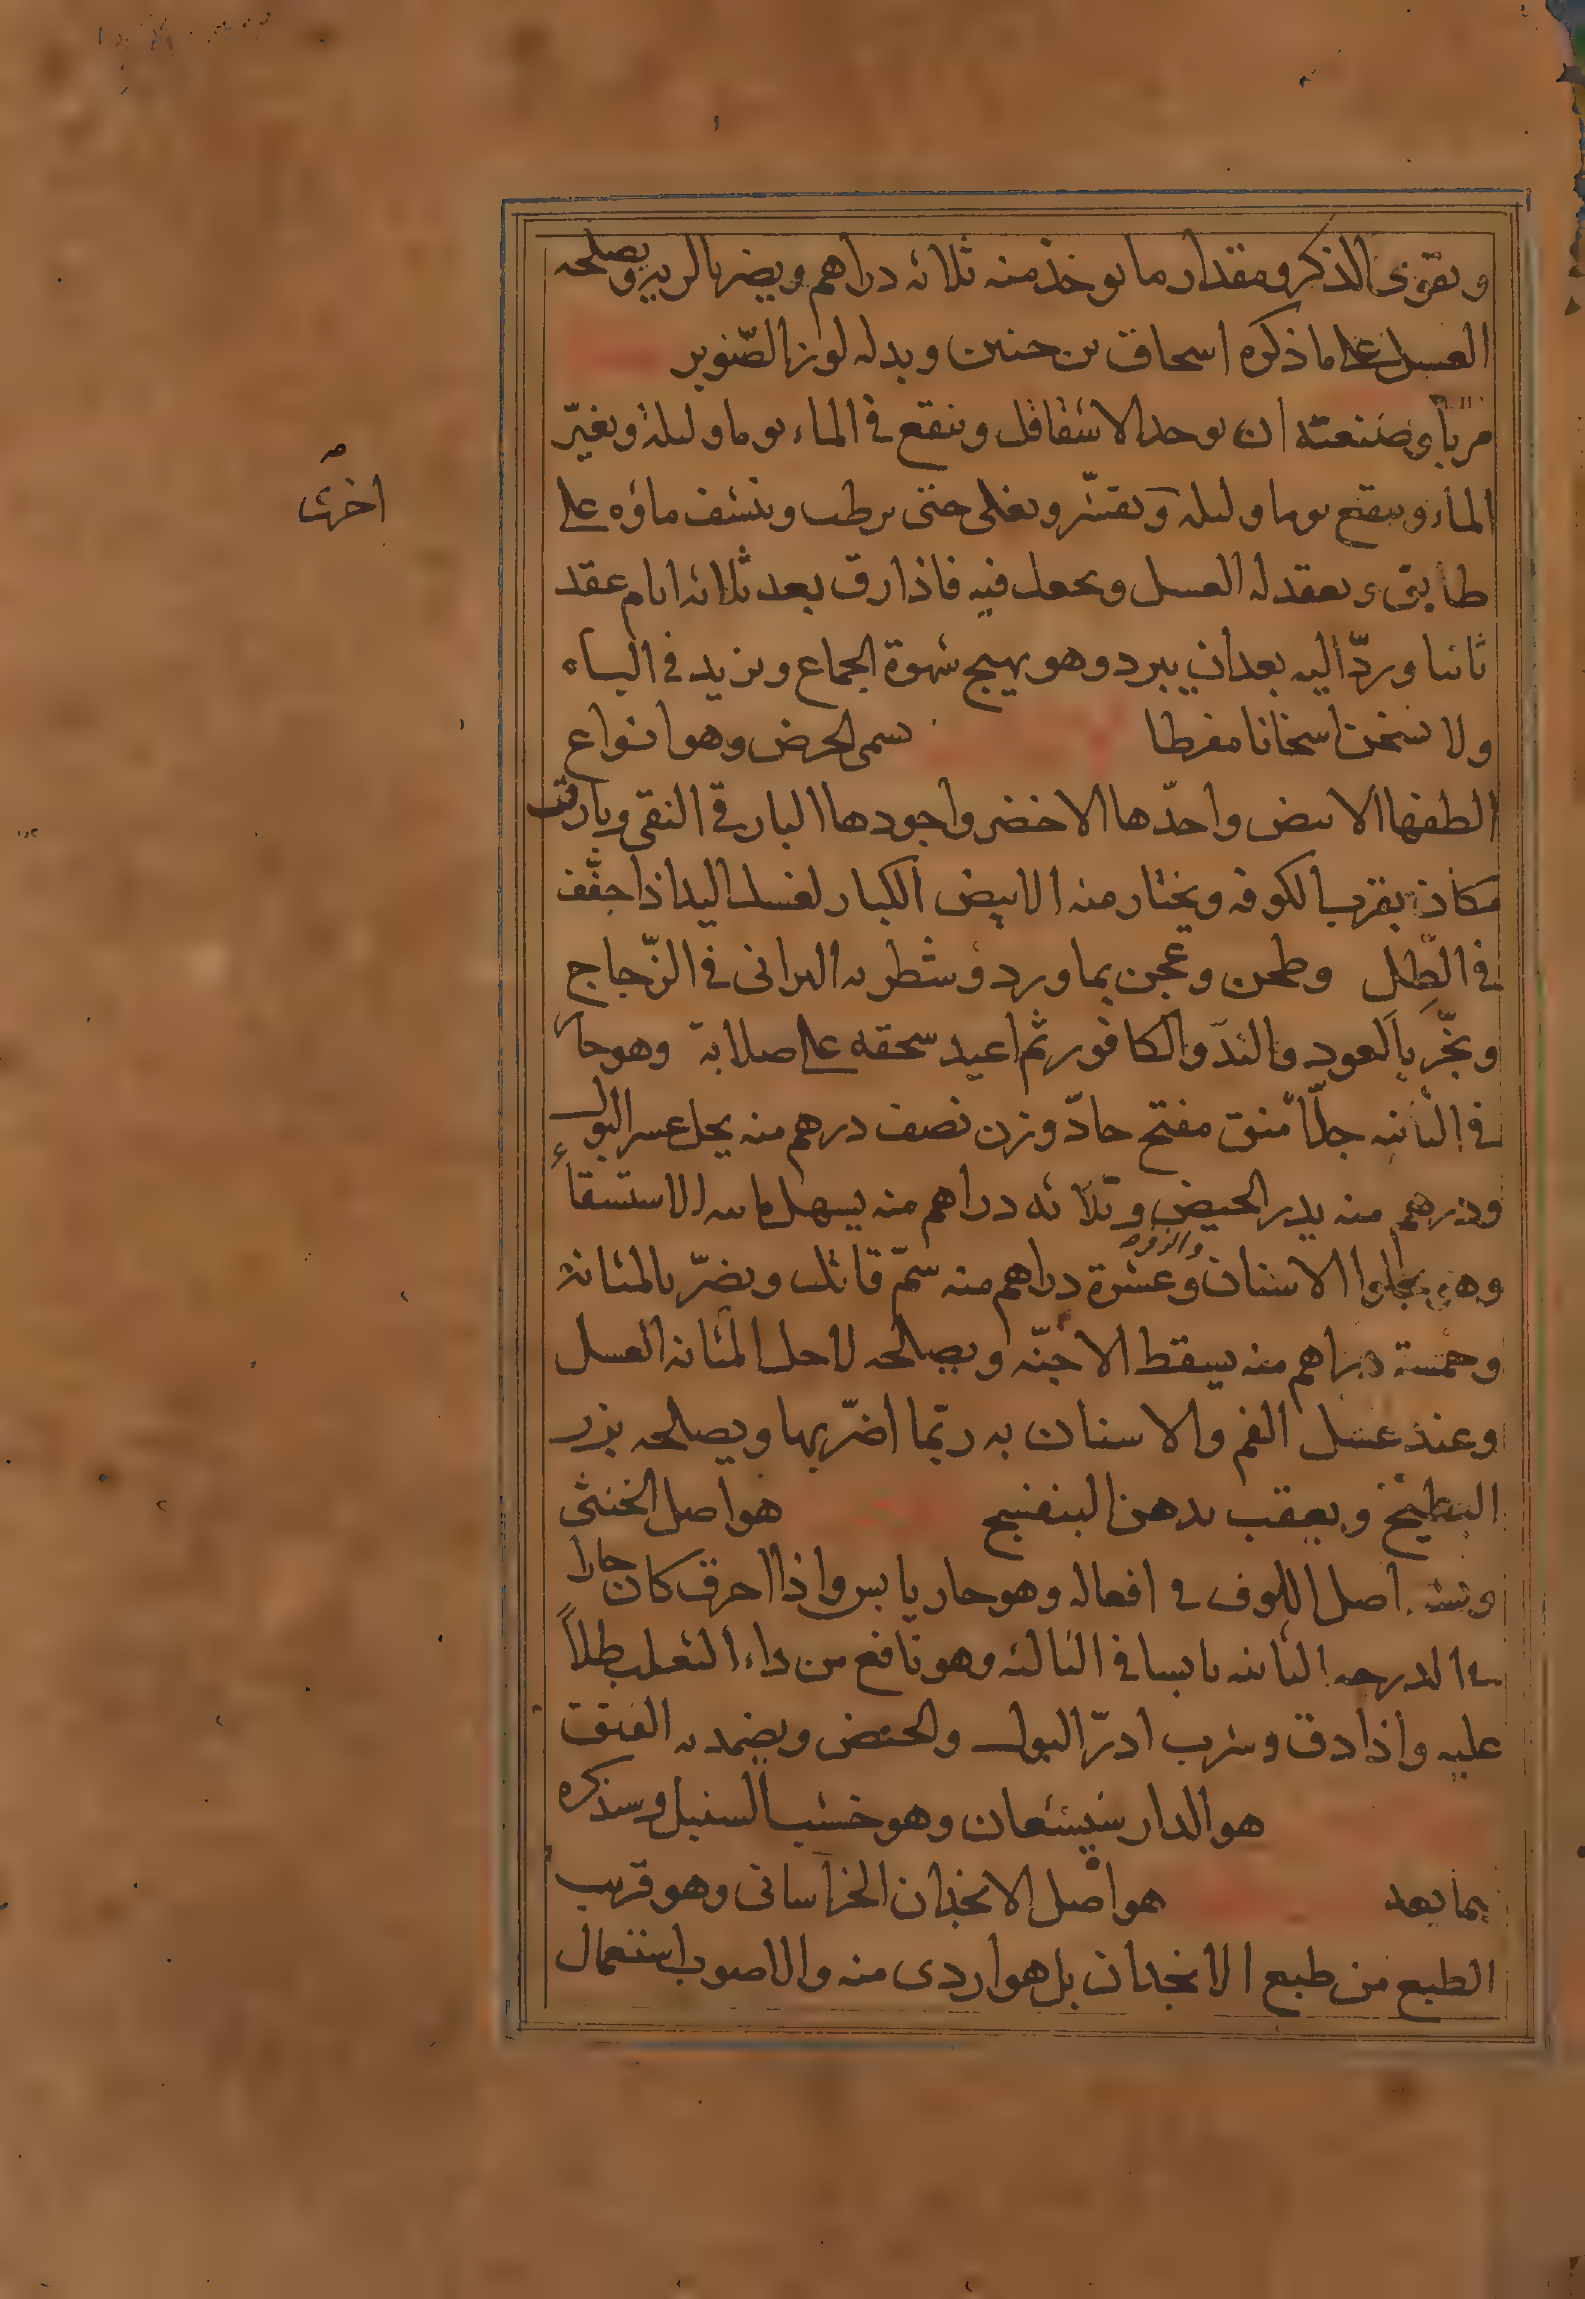 ويقوى الذكر ومقدار ما يوخذ منه ثلاثه دراهم ويضر بالريه ويصلحه
العسل على ما ذكره اسحاق بن حنين وبدله لوز الصّنوبر
مربا وصنعته ان يوخد الاشقاقل وينقع في الماء يوما وليلة ويغيّر
الماء وينقع يوما وليله ويقشّر ويغلى حتى يرطب وينشف ماؤه على
طابق ويعقد له العسل ويجعل فيه فاذا رق بعد ثلاثه ايام عقد
ثانيا وردّ اليه بعد ان يبرد وهو يهيج شهوة الجماع ويزيد في الباه
ولا يسخن اسخانا مفرطا يسمى الحرض وهو انواع
الطفها الابيض واحدّها الاخضر واجودها البارقي النقي وبارق
مكان بقرب الكوفه ويختار منه الابيض الكبار لغسل اليد اذا جفّف
في الظّل وطحن وعجن بماورد وشطر به البراني في الزّجاج
وبخّر بالعود والندّ والكافور ثم اعيد سحقه على صلابة وهو حار
في الثانيه جلّا منق مفتح حادّ وزن نصف درهم منه يحل عسر البول
ودرهم منه يدر الحيض وثلاثه دراهم منه يسهل مايية الاستسقاء
وهو يجلوا الاسنان وعشرة دراهم منه سمّ قاتل ويضرّ بالمثانة
وخمسة دراهم منه يسقط الاجنّه ويصلحه لاجل المثانه العسل
وعند غسل الفم والاسنان به ربّما اضّر بها ويصلحه بزر
البطيخ ويعقب بدهن البنفسج هو اصل الخنثى
اصل اللوف في افعاله وهو حار يابس واذا احرق كان حارا
في الدرجه الثانيه يابسا في الثالثه وهو نافع من داء الثعلب طلاً
عليه واذا دق وشرب ادرّ البول والحيض ويضمد به الفتق
هو الدار شيشعان وهو خشب السنبل وسنذكره
بما بعد هو اصل الانجذان الخراساني وهو قريب
الطبع من طبع الانجدان بل هو اردى منه والاصوب استعمال
اخرى